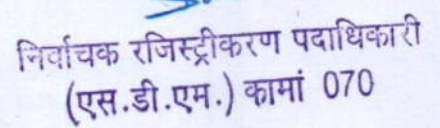 निर्वाचक रजिस्ट्रीकरण पदाधिकारी
(एस.डी.एम.) कामां 070